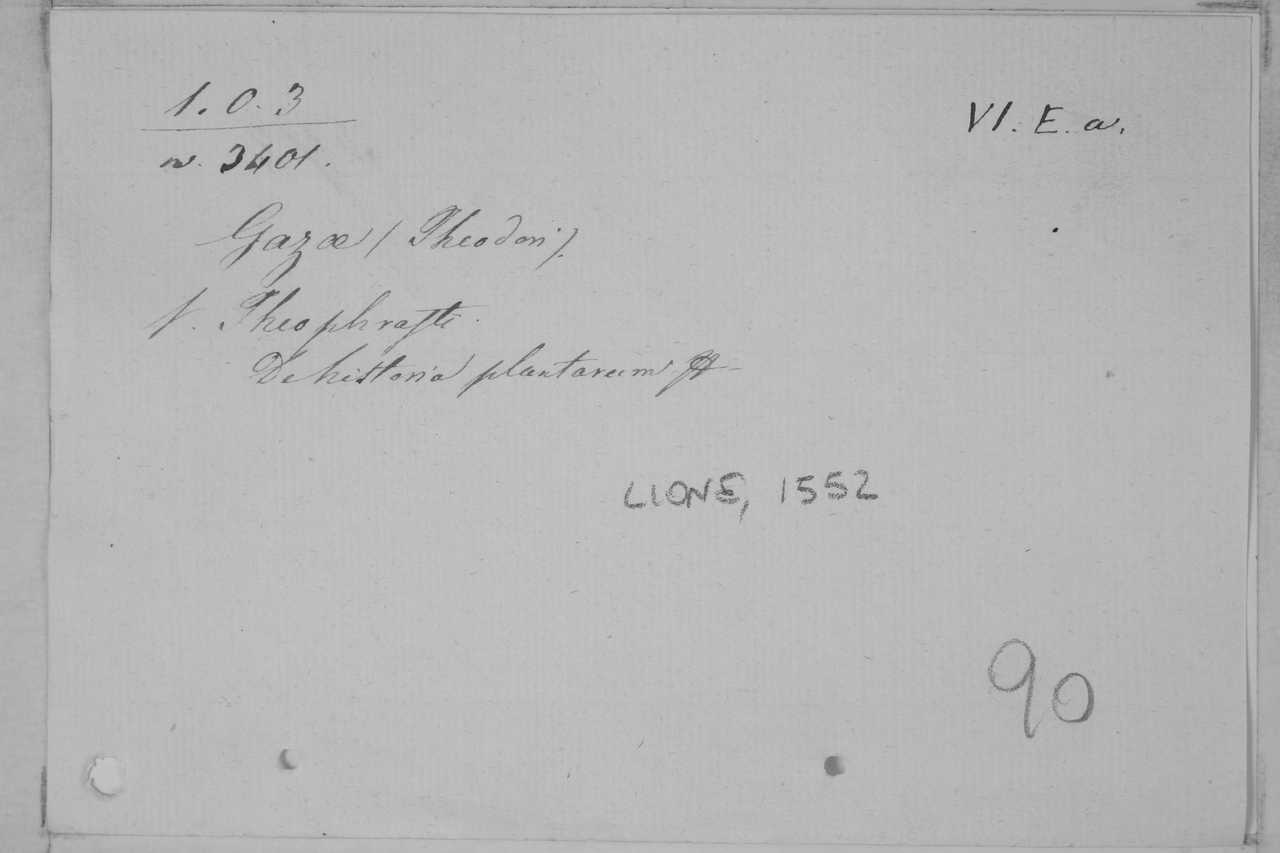 1. O. 3
VI. E. a.
n. 3401.
Gazæ (Theodori).
V. Theophrasti.
De historia plantarum
LIONE, 1552
90